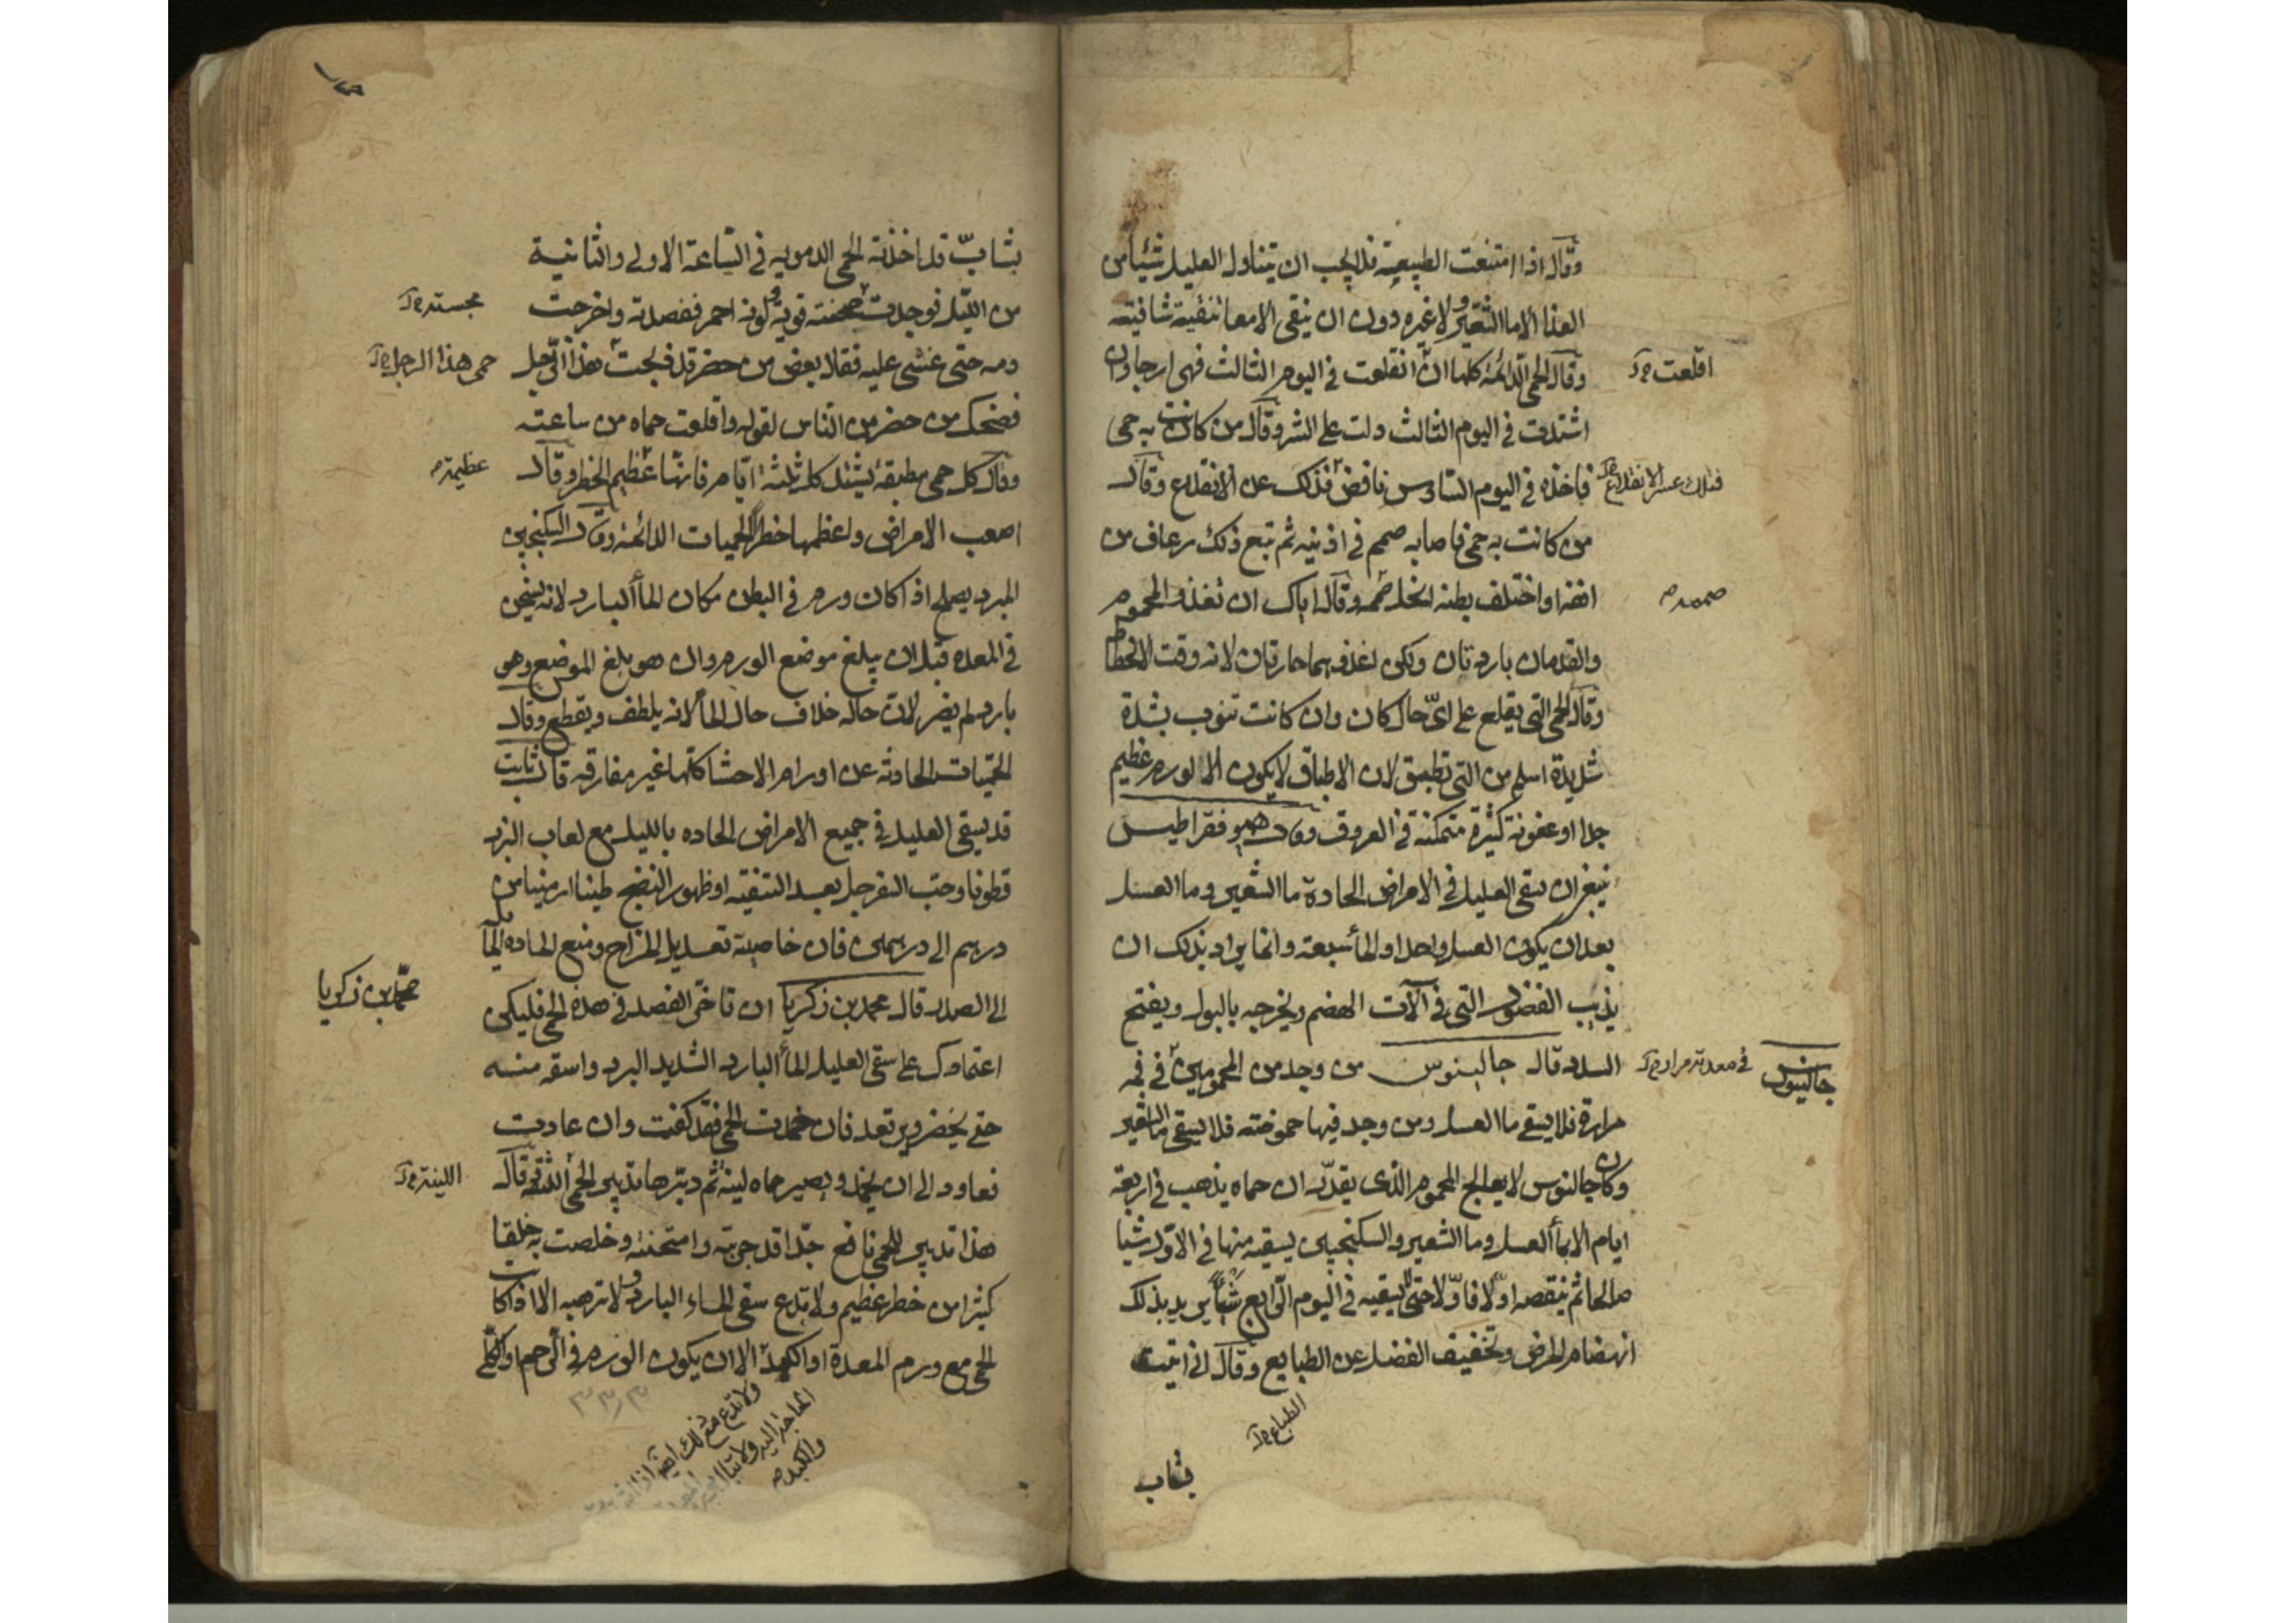 وقال اذا امتنعت الطبيعة فلا يجب ان يتناول العليل شيئا من
الغذا الا ما الشعير ولا غيره دون ان ينقى الامعا تنقية شافيته
وقال الحمى الدائمة كلها ان انقلعت في اليوم الثالث فهى ارجا وان
اقلعت
اشتدت في اليوم الثالث دلت على الشر وقال من كانت به حمى
فاخذه في اليوم السادس نافض فذلك عن الانقلاع وقال
فتلك عسر الانقلاع
من كانت به حمى فاصابه صمم في اذنيه ثم تبع ذلك رعاف من
انفه او اختلف بطنه انحل صممه وقال اياك ان تغذو المحموم
صممه
والقدمان باردتان ولكن اغذه وهما حارتان لانه وقت الانحطاط
وقال الحمى التي يقلع على اى حال كان وان كانت تنوب بشدة
شديدة اسلم من التي تطبق لان الاطباق لا يكون الا لورم عظيم
جدا او عفونة كثيرة متمكنة في العروق وقال هيوفقراطيس
ينبغي ان يسقى العليل في الامراض الحادة ما الشعير وما العسل
بعد ان يكون العسل واحدا والماء سبعة وانما يراد بذلك ان
يذيب الفضول التي في آلات الهضم ويخرجه بالبول ويفتح
السدد قال جالينوس من وجد من المحمومين في فمه
في معدته مرار
جالينوس
مرارة فلا يسقى ما العسل ومن وجد فيها حموضته فلا يسقى ما الشعير
وكان جالنوس لا يعالج المحموم الذى يقدر ان حماه يذهب في اربعة
ايام الا بماء العسل وما الشعير والسكنجبين يسقيه منها في الاول شيا
صالحا ثم ينقصه اولا فاولا حتى يسقيه في اليوم الرابع شيأ يريد بذلك
انهضام المرض وتخفيف الفضل عن الطبايع وقال انى اتيت
الطباع
بشاب
بشاب قد اخذته الحمى الدمويه في الساعة الاولى والثانية
من الليل فوجدت قوية ولونه احمر ففصدته واخرجت
مجسته
دمه حتى غشى عليه فقال بعض من حضر قد ذبحت هذا الرجل
حمى هذا الرجل
فضحك من حضر من الناس لقوله واقلعت حماه من ساعته
وقال كل حمى مطبقة تشتد كل ثلثة ايام فانها عظيم الخطر وقال
عظيمة
اصعب الامراض واعظمها خطرا الحميات الدائمة وقال السكنجبين
المبرد يصلح اذا كان ورم في البطن مكان الماء البارد لانه يسخن
في المعده قبل ان يبلغ موضع الورم وان هو بلغ الموضع وهو
بارد لم يضر لان حاله خلاف حال الماء لانه يلطف ويقطع وقال
الحميات الحادثه عن اورام الاحشا كلها غير مفارقه قال ثابت
قد يسقى العليل في جميع الامراض الحاده بالليل مع لعاب البزر
قطونا وحب السفرجل بعد التنقيه او ظهور النضج طينا ارمنيا من
درهم الى درهمين فان خاصيته تعديل المزاج ومنع الماده
الى الصدر قال محمد بن زكريا ان تاخر الفصد في هذه الحمى فليكن
محمد بن زكريا
اعتمادك على سقى العليل الماء البارد الشديد البرد واسقه منه
حتى يخضر ويرتعد فان خمدت الحمى فقد كفيت وان عادت
فعاود الى ان يخمد ويصير حماه لينه ثم دبرها تدبير الحمى قال
اللينة
هذا تدبير للحمى نافع جدا قد جربته وامتحنته وخلصت به خلقا
كثيرا من خطر عظيم ولا تدع سقى الماء البارد ولا ترهبه الا اذا كانت
الحمى مع ورم المعدة او الكبد الا ان يكون الورم في الرحم او الكلى
ولا تدع مع ذلك ايضا اذا
والكبد